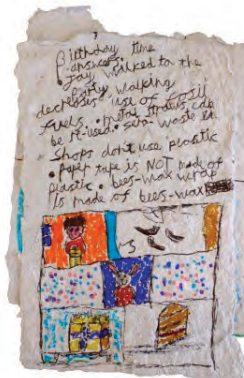 Birthday time
answers.
• Jay walked to the
party walking
decreases use of fossil
fuels. • metal straws can
be re-used. • zero waste
shops dont use plastic
• paper tape is NOT made of
plastic • bees-wax wrap
is made of bees-wax